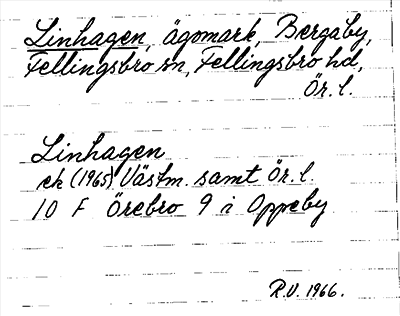 Linhagen, ägomark, Bergaby,
Fellingsbro sn, Fellingsbro hd,
Ör. l.
Linhagen
ek (1965) Västm. samt Ör. l.
10 F Örebro 9 i Oppeby
R.V. 1966.